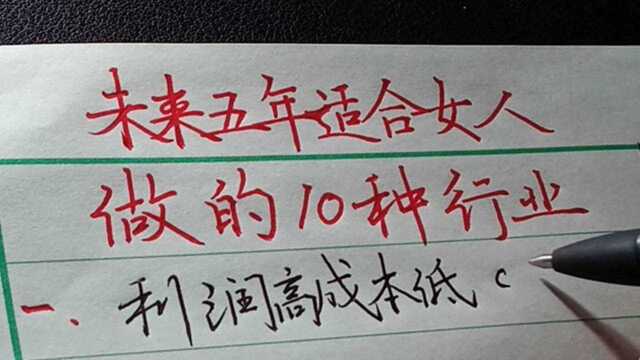 未来五年适合女人
做的10种行业
一、利润高成本低(